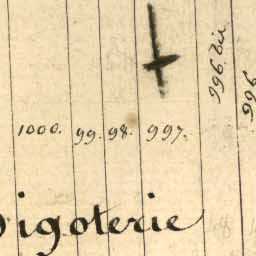 996 bis
996
1000. 99. 98. 997.
igoterie